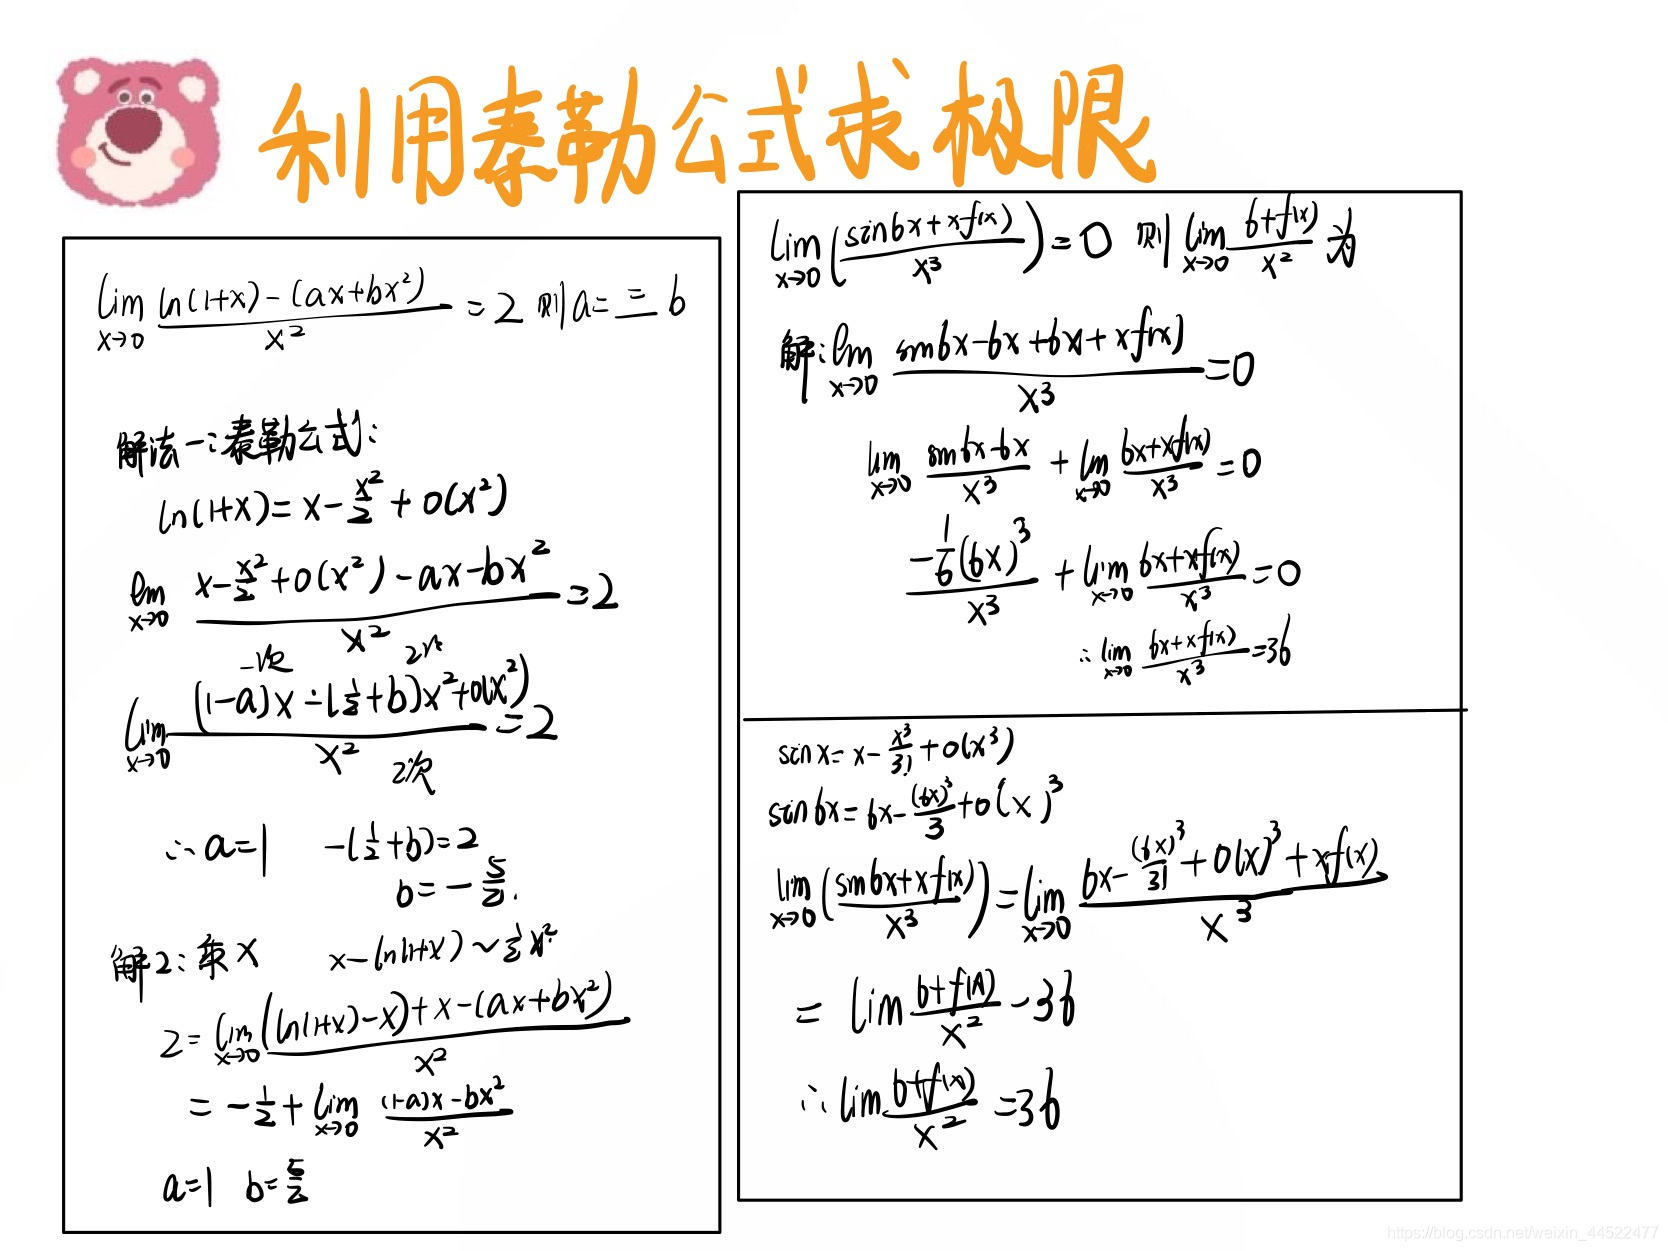 利用泰勒公式求极限
lim x→0 (ln(1+x)-(ax+bx²))/x² = 2 则 a= = b
解法一:泰勒公式:
ln(1+x)= x-x²/2 + o(x²)
lim x→0 (x-x²/2+o(x²)-ax-bx²)/x² = 2
一次 2次
lim x→0 ((1-a)x-(1/2+b)x²+o(x²))/x² = 2
2次
∴a=1 -(1/2+b)=2
b=-5/2.
解2: 乘x x-ln(1+x)~1/2x²
2= lim x→0 ((ln(1+x)-x)+x-(ax+bx²))/x²
= -1/2+ lim x→0 ((1-a)x-bx²)/x²
a=1 b=5/2
lim x→0 ((sin6x+xf(x))/x³)=0 则 lim x→0 (6+f(x))/x² 为
解: lim x→0 (sin6x-6x+6x+xf(x))/x³ =0
lim x→0 (sin6x-6x)/x³ + lim x→0 (6x+xf(x))/x³ =0
(-1/6(6x)³)/x³ + lim x→0 (6x+xf(x))/x³ =0
∴ lim x→0 (6x+xf(x))/x³ =36
sinx= x-x³/3!+o(x³)
sin6x= 6x-(6x)³/3+o(x)³
lim x→0 ((sin6x+xf(x))/x³)= lim x→0 (6x-(6x)³/3!+o(x)³+xf(x))/x³
= lim (6+f(x))/x² -36
∴ lim (6+f(x))/x² =36
https://blog.csdn.net/weixin_44522477